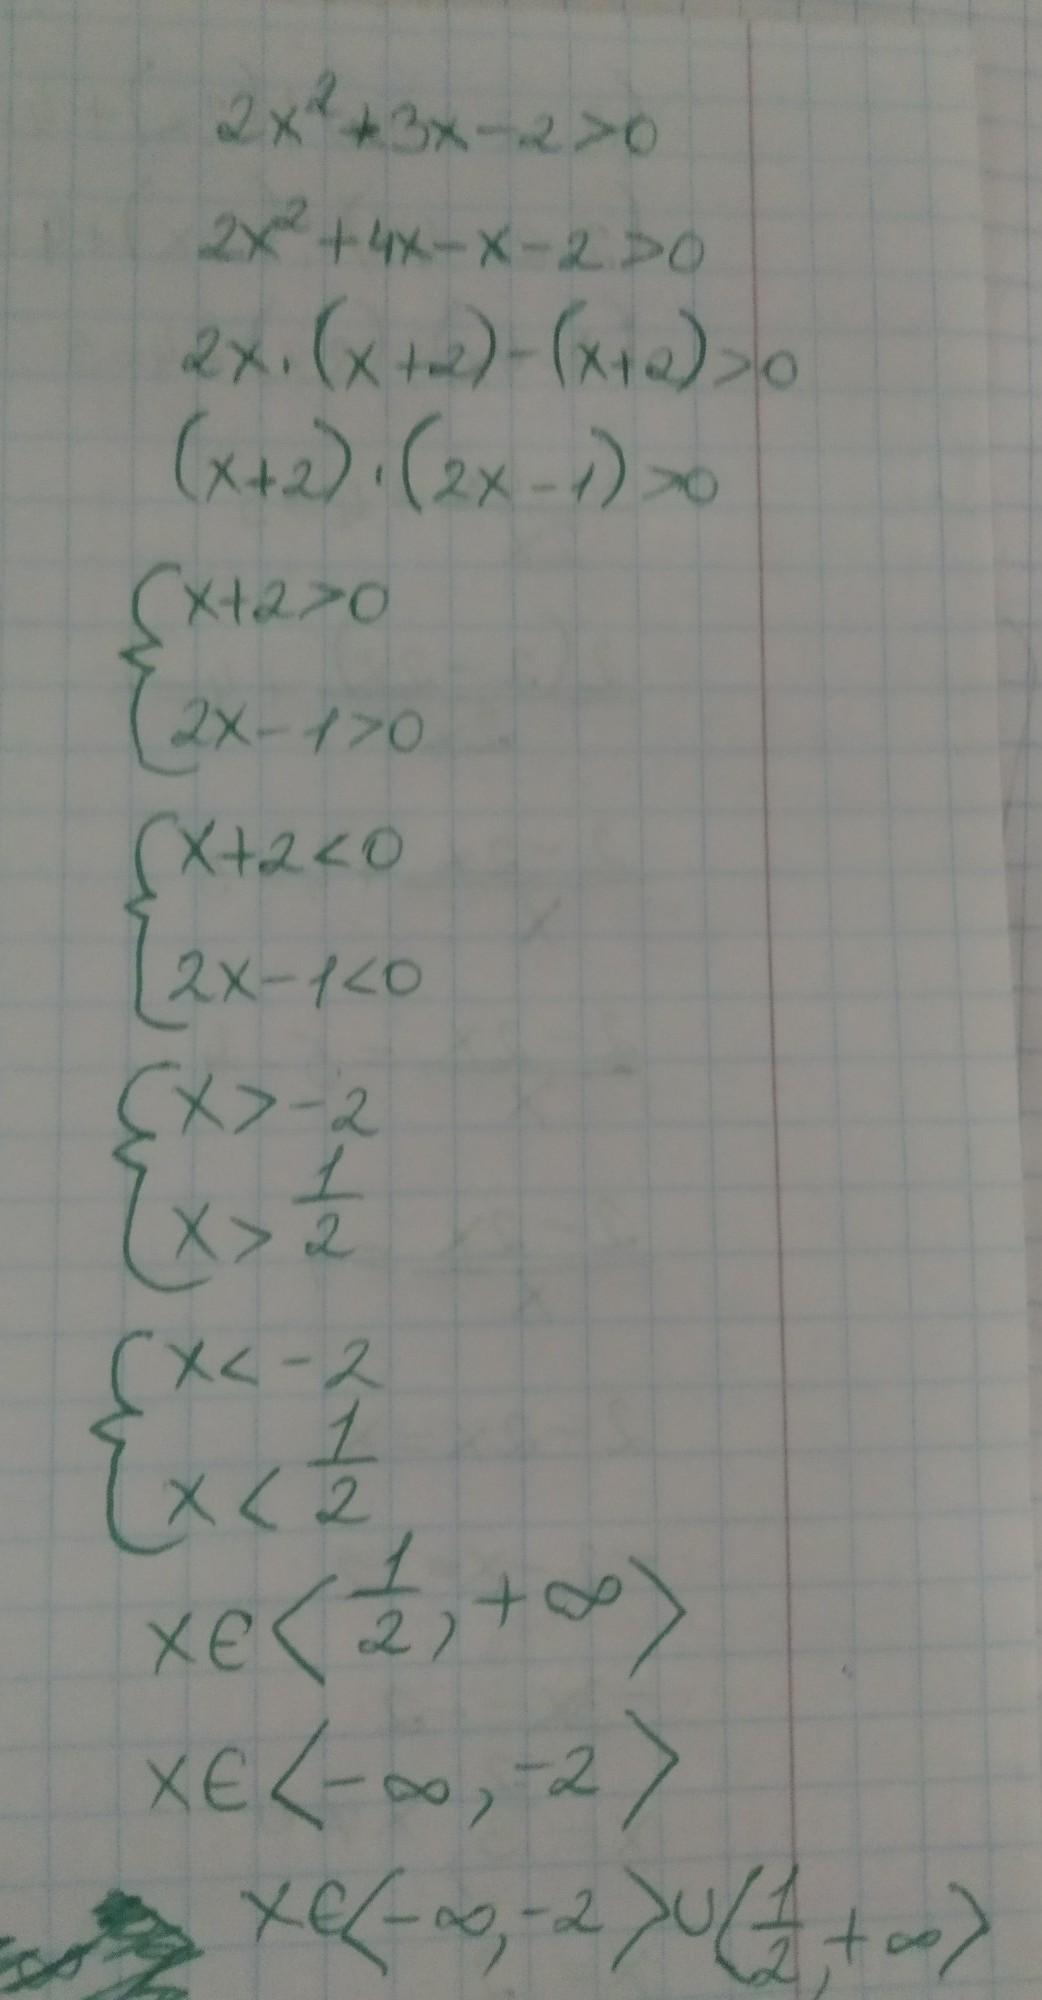 2x²+3x-2>0
2x²+4x-x-2>0
2x·(x+2)-(x+2)>0
(x+2)·(2x-1)>0
{x+2>0
2x-1>0
{x+2<0
2x-1<0
{x>-2
x>1/2
{x<-2
x<1/2
x∈⟨1/2,+∞⟩
x∈⟨-∞,-2⟩
x∈⟨-∞,-2⟩∪⟨1/2,+∞⟩